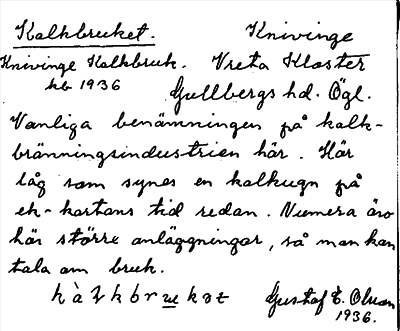 Kalkbruket. Knivinge
Knivinge Kalkbruk. Vreta Kloster
hb 1936 Gullbergs hd. Ögl.
Vanliga benämningen på kalk-
bränningsindustrien här. Här
låg som synes en kalkugn på
ek-kartans tid redan. Numera äro
här större anläggningar, så man kan
tala om bruk.
Gustaf E. Olsson
1936.